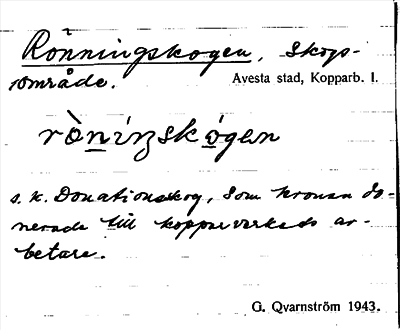 Rönningskogen, skogs-
område. Avesta stad, Kopparb. l.
ròníŋskógen
s. k. Donationsskog, som kronan do-
nerade till kopparverkets ar-
betare.
G. Qvarnström 1943.